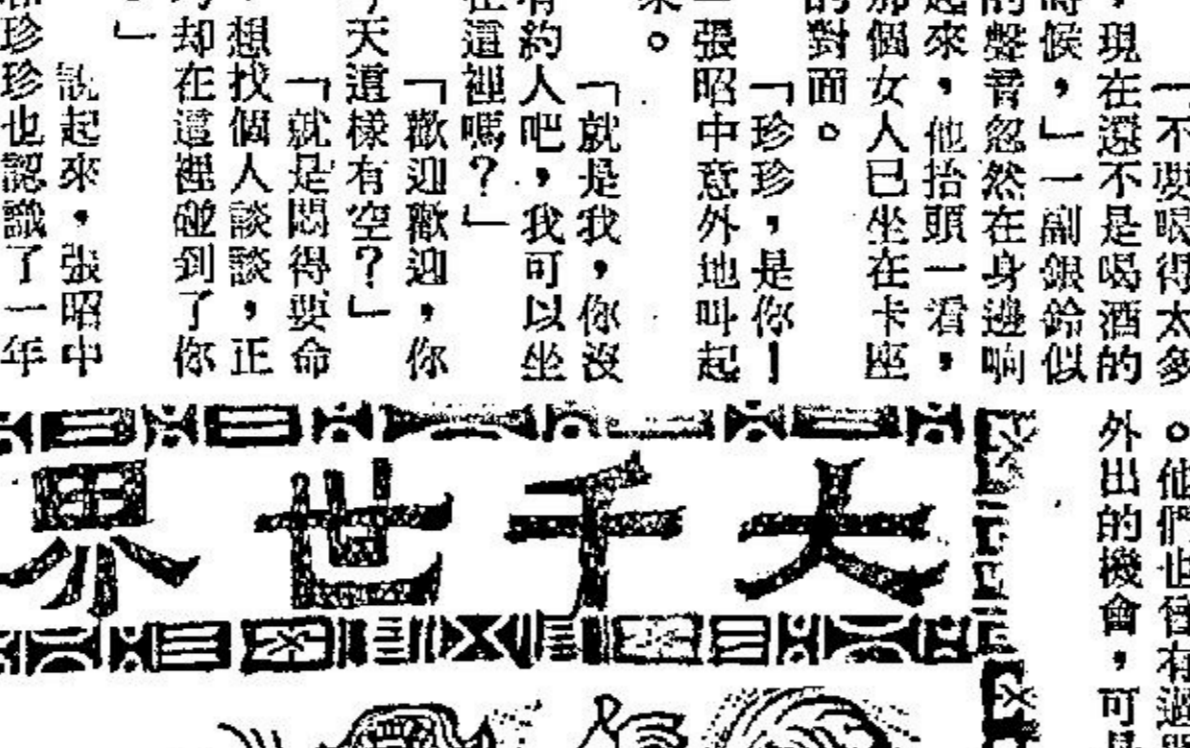 「不要喝得太多
，現在還不是喝酒的
時候，」一副銀鈴似
的聲音忽然在身邊响
起來，他抬頭一看，
那個女人已坐在卡座
的對面。
「珍珍，是你！
」張昭中意外地叫起
來。
「就是我，你沒
有約人吧，我可以坐
在這裡嗎？」
「歡迎歡迎，你
今天這樣有空？」
「就是悶得要命
，想找個人談談，正
却在這裡碰到了你
。」
說起來，張昭中
珍珍也認識了一年
。他們也曾有過
外出的機會，可
大千世界